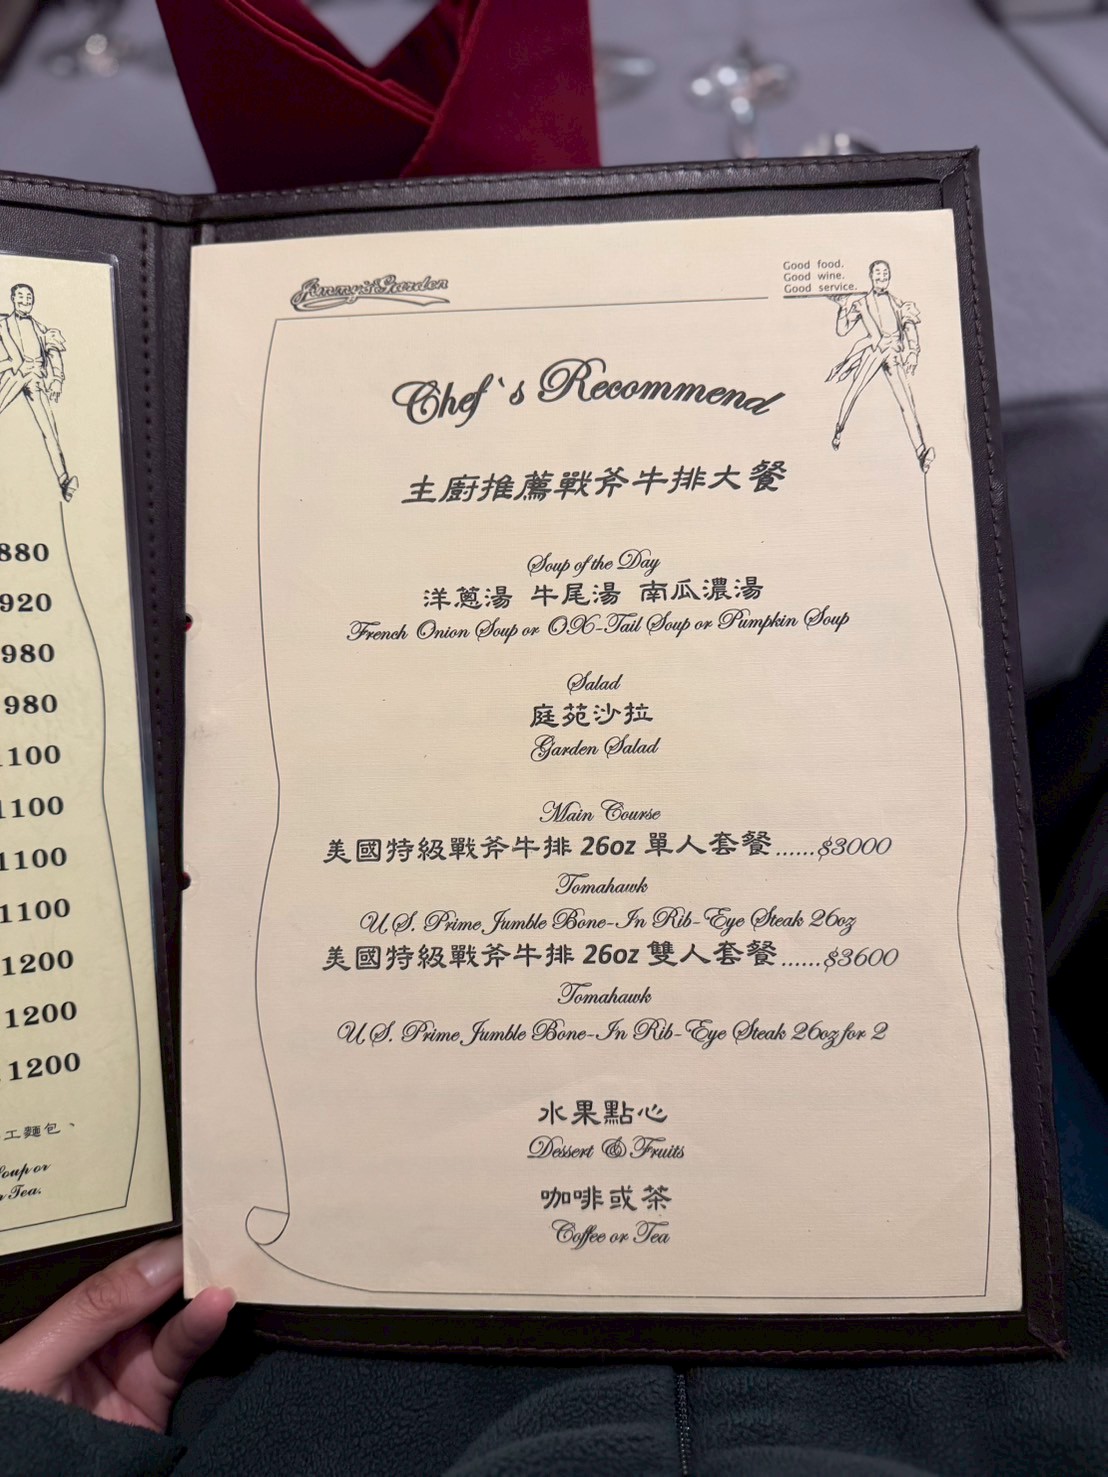 880
920
980
980
1100
1100
1100
1100
1200
1200
1200
工麵包、
Soup or
Tea.
Jimmy's Garden
Good food.
Good wine.
Good service.
Chef`s Recommend
主廚推薦戰斧牛排大餐
Soup of the Day
洋蔥湯 牛尾湯 南瓜濃湯
French Onion Soup or OX-Tail Soup or Pumpkin Soup
Salad
庭苑沙拉
Garden Salad
Main Course
美國特級戰斧牛排 26oz 單人套餐......$3000
Tomahawk
U.S. Prime Jumble Bone-In Rib-Eye Steak 26oz
美國特級戰斧牛排 26oz 雙人套餐......$3600
Tomahawk
U.S. Prime Jumble Bone-In Rib-Eye Steak 26oz for 2
水果點心
Dessert & Fruits
咖啡或茶
Coffee or Tea